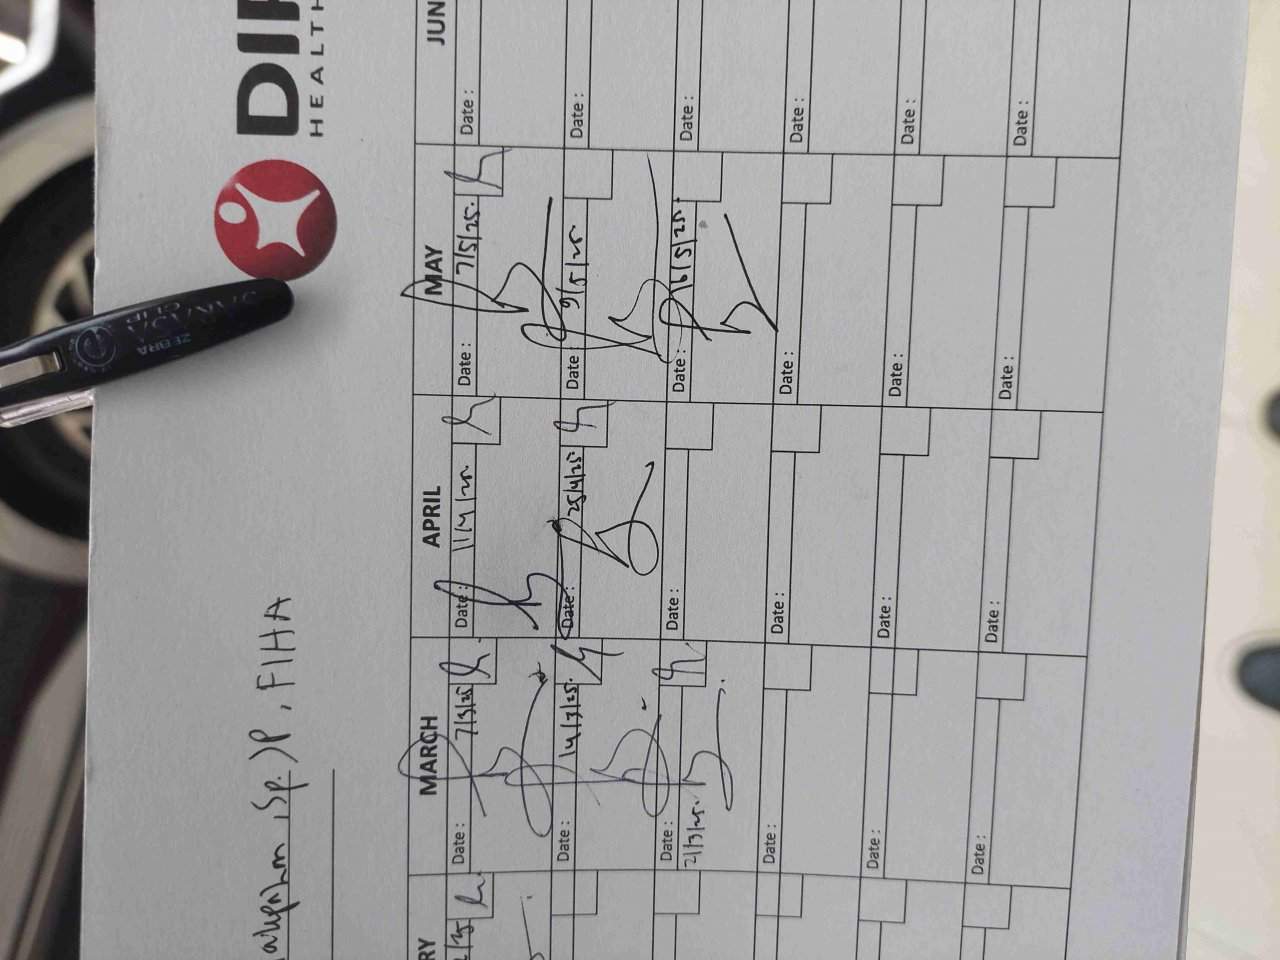 DI
HEALTH
, Sp. JP, FIHA
RY MARCH APRIL MAY JUN
Date : 7/3/25 Date : 11/4/25 Date : 7/5/25. Date :
Date : 14/3/25. Date : 25/4/25 Date : 9/5/25 Date :
Date : 21/3/25. Date : Date : 16/5/25. Date :
Date : Date : Date : Date :
Date : Date : Date : Date :
Date : Date : Date : Date :
ZEBRA
SARASA
CLIP